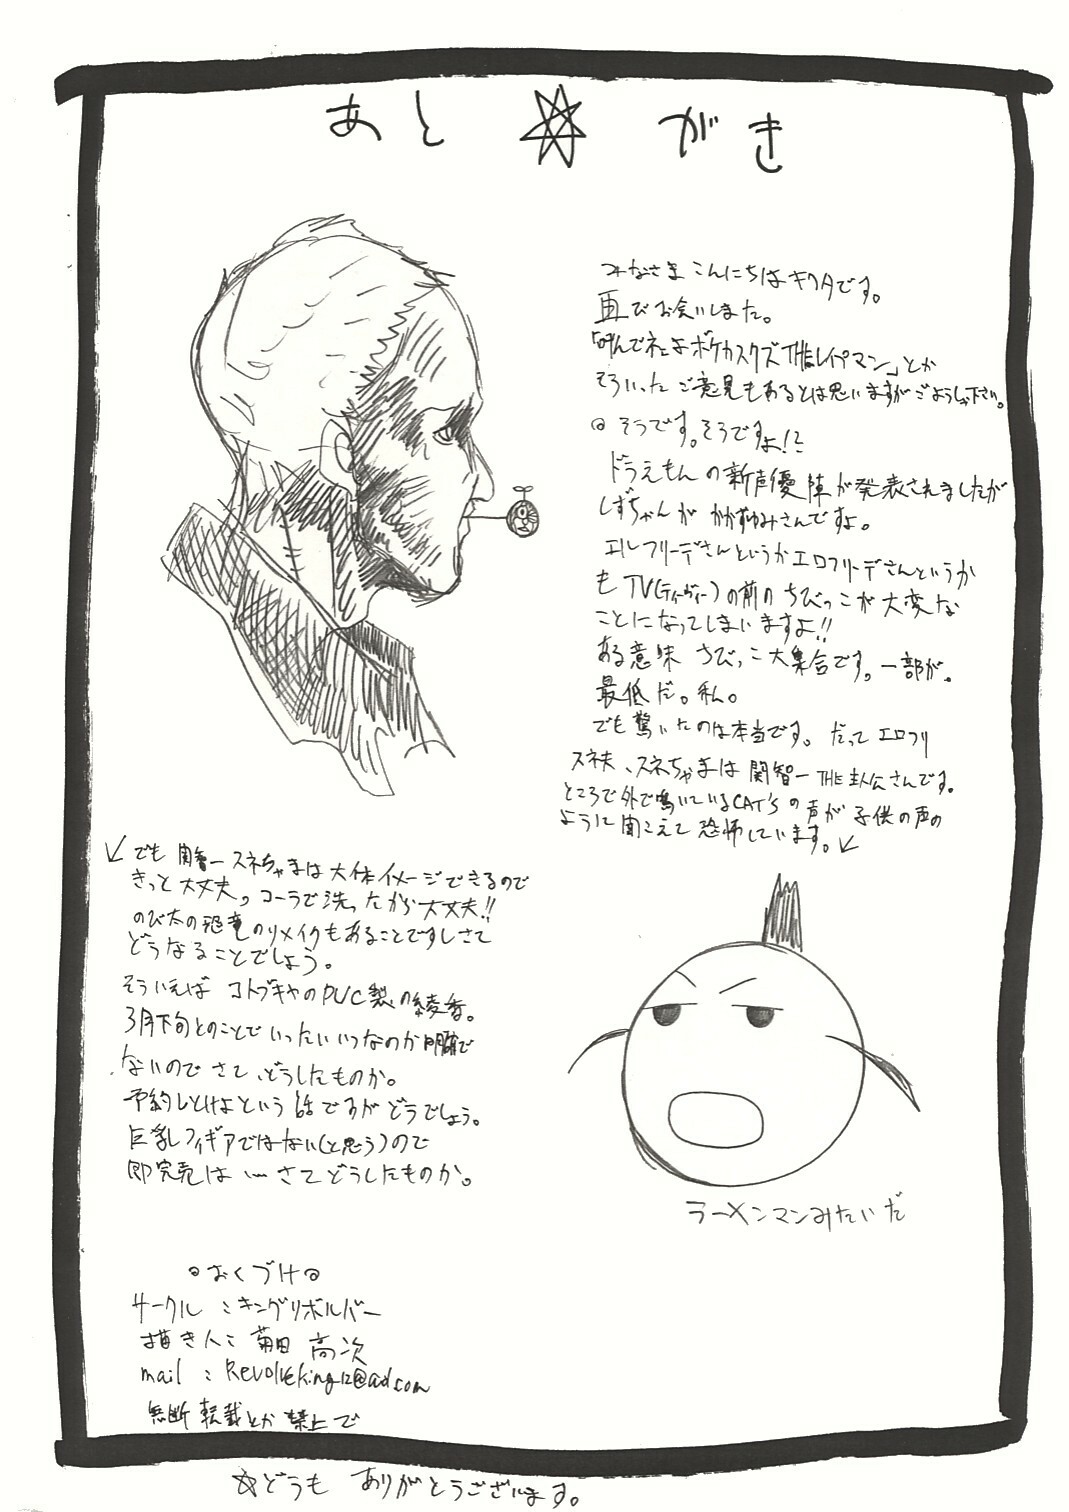 あと☆がき
みなさま こんにちは キクタです。
再びお会いしました。
「死んでネェよボケカスクズ THEレイプマン」とか
そういった ご意見もあるとは思いますがごようしゃ下さい。
◎ そうです。そうですよ!!
ドラえもんの新声優陣が発表されましたが
しずちゃんが かかずゆみさんですよ。
エルフリーデさんというかエロフリーデさんというか
もTV(ティーヴィー)の前のちびっこが大変な
ことになってしまいますよ!!
ある意味 ちびっこ大集合です。一部が。
最低だ。私。
でも驚いたのは本当です。だって エロフリ
スネ夫、スネちゃまは 関智一 THE主人公さんです。
ところで外で鳴いているCAT'sの声が子供の声の
ように聞こえて恐怖しています。↙
↙でも 関智一スネちゃまは大体イメージできるので
きっと大丈夫。コーラで洗ったから大丈夫!!
のび太の恐竜のリメイクもあることですしさて
どうなることでしょう。
そういえば コトブキヤのPVC製の綾香。
3月下旬とのことで いったいいつなのか明確で
ないので さて、どうしたものか。
予約しとけよという話ですがどうでしょう。
巨乳フィギアではない(と思う)ので
即完売は…さてどうしたものか。
ラーメンマンみたいだ
◎おくづけ◎
サークル:キングリボルバー
描き人:菊田 高次
mail:Revolveking12@aol.com
無断転載とか禁止で
☆どうも ありがとうございます。